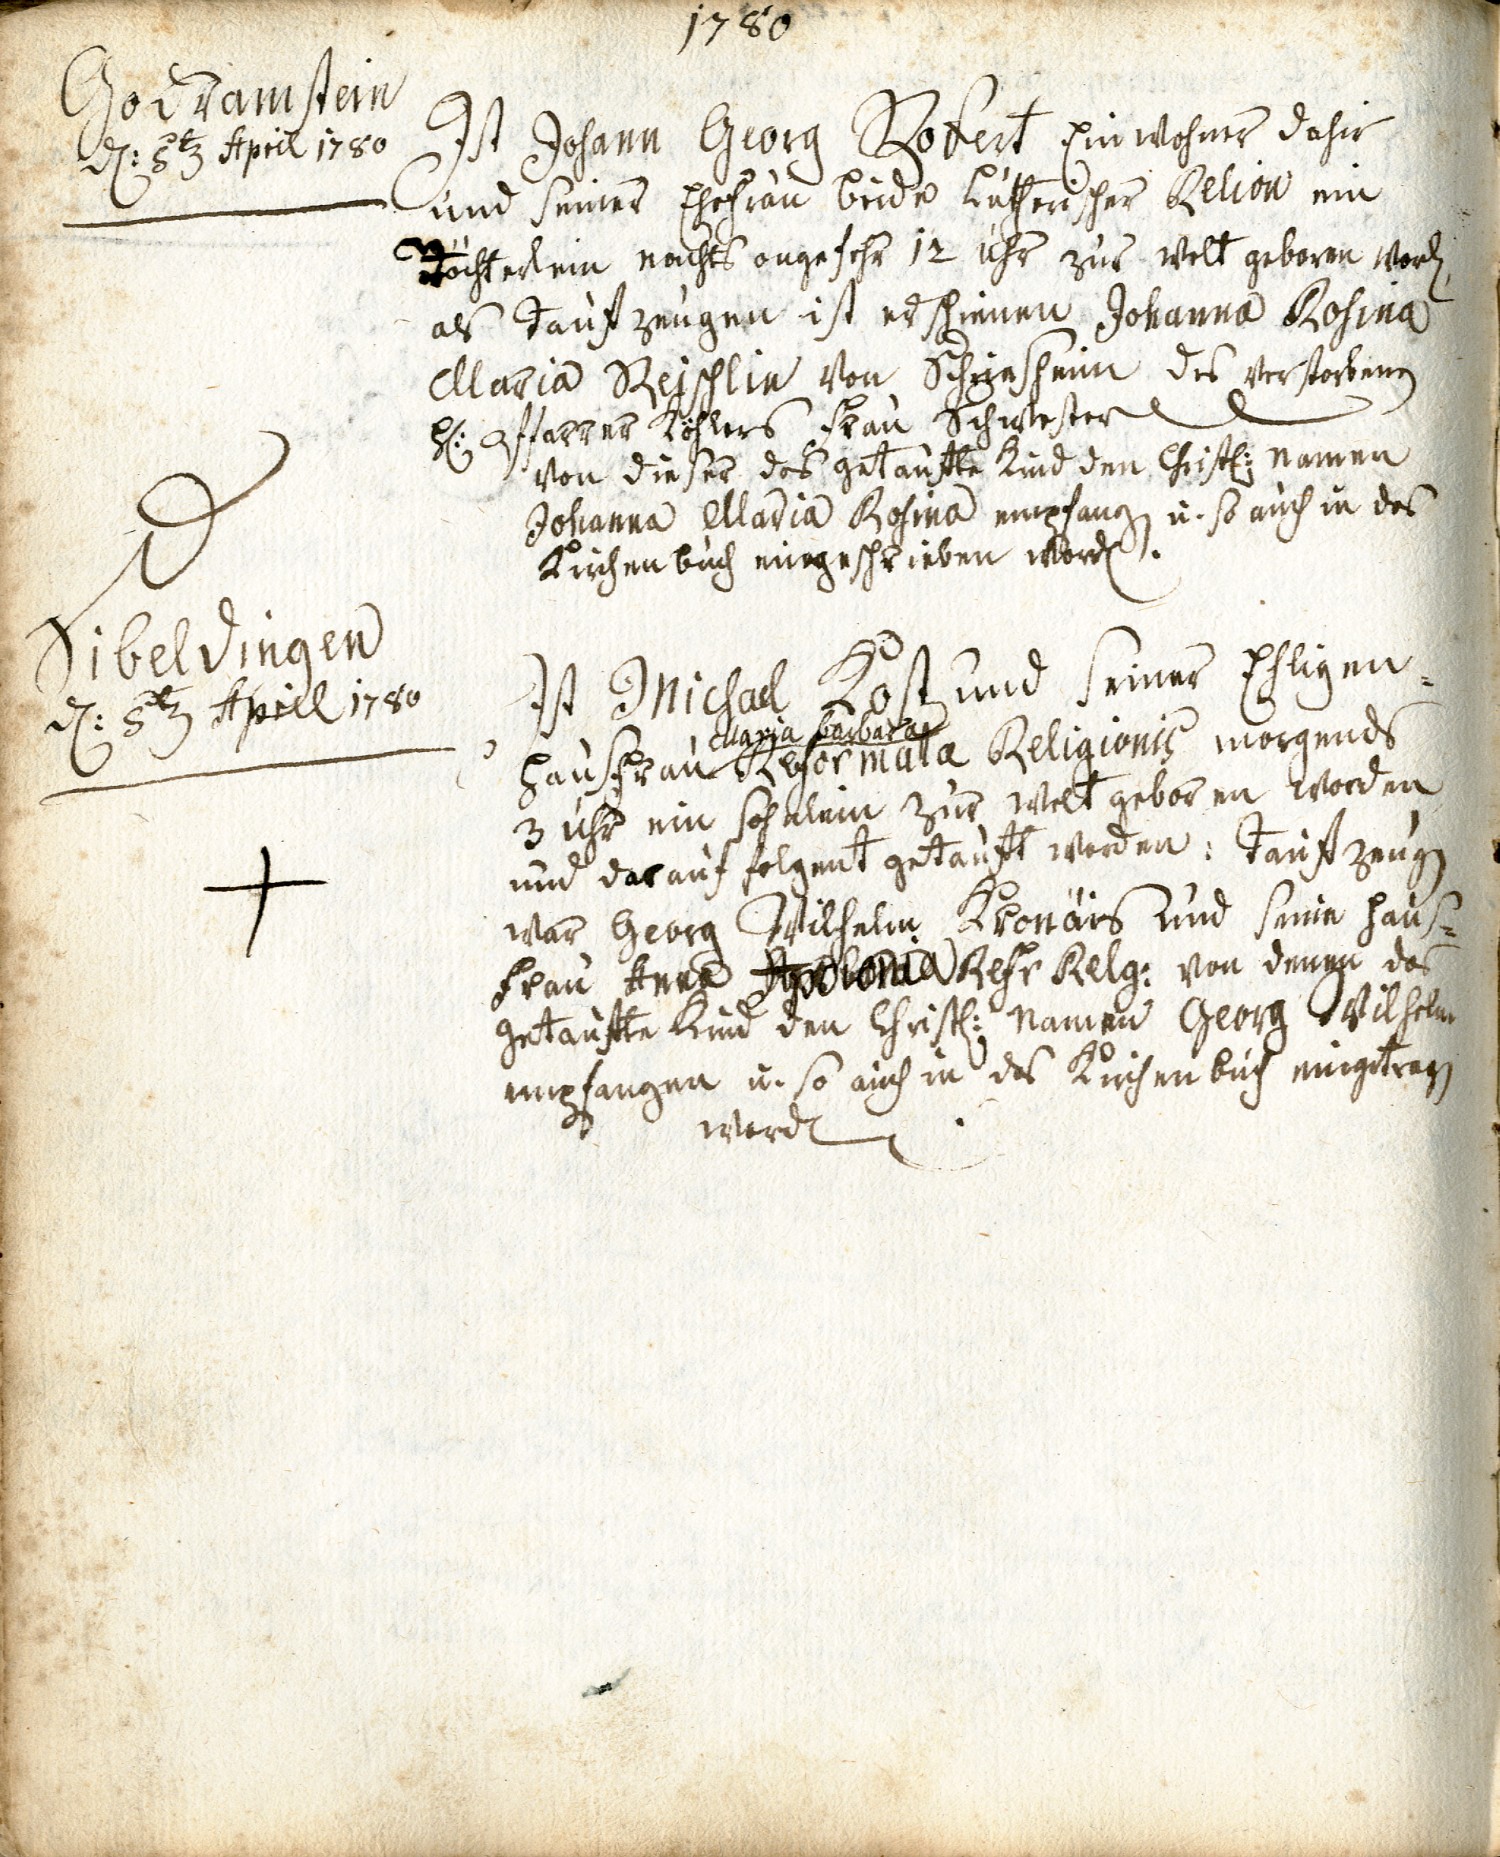 1780
Godramstein
d: 8tz April 1780
Ist Johann Georg Bofert Einwohner dahir
und seiner Ehefrau beide Lutherischer Relion ein
Töchterlein nachts ongefehr 12 uhr zur welt geboren word
als Taufzeugen ist erschienen Johanna Rosina
Maria Reischlin von des verstorbenen
H: Pfarrer Köhlers frau Schwester
von dieser das getaufte Kind den Christl: namen
Johanna Maria Rosina empfang u. so auch in das
Kirchenbuch eingeschrieben word.
Sibeldingen
d: 8tz April 1780
Ist Michael Kost und seiner Ehligen=
Maria barbara
hausfrau Reformata Religionis morgends
3 uhr ein söhnlein zur welt geboren worden
und darauf folgent getauft worden: Taufzeug
war Georg Wilhelm und seine haus=
frau Anna Apolonia Refr Relg: von denen das
getaufte Kind den Christl: Namen Georg Wilhelm
empfangen u. so auch in das Kirchenbuch eingetrag
word